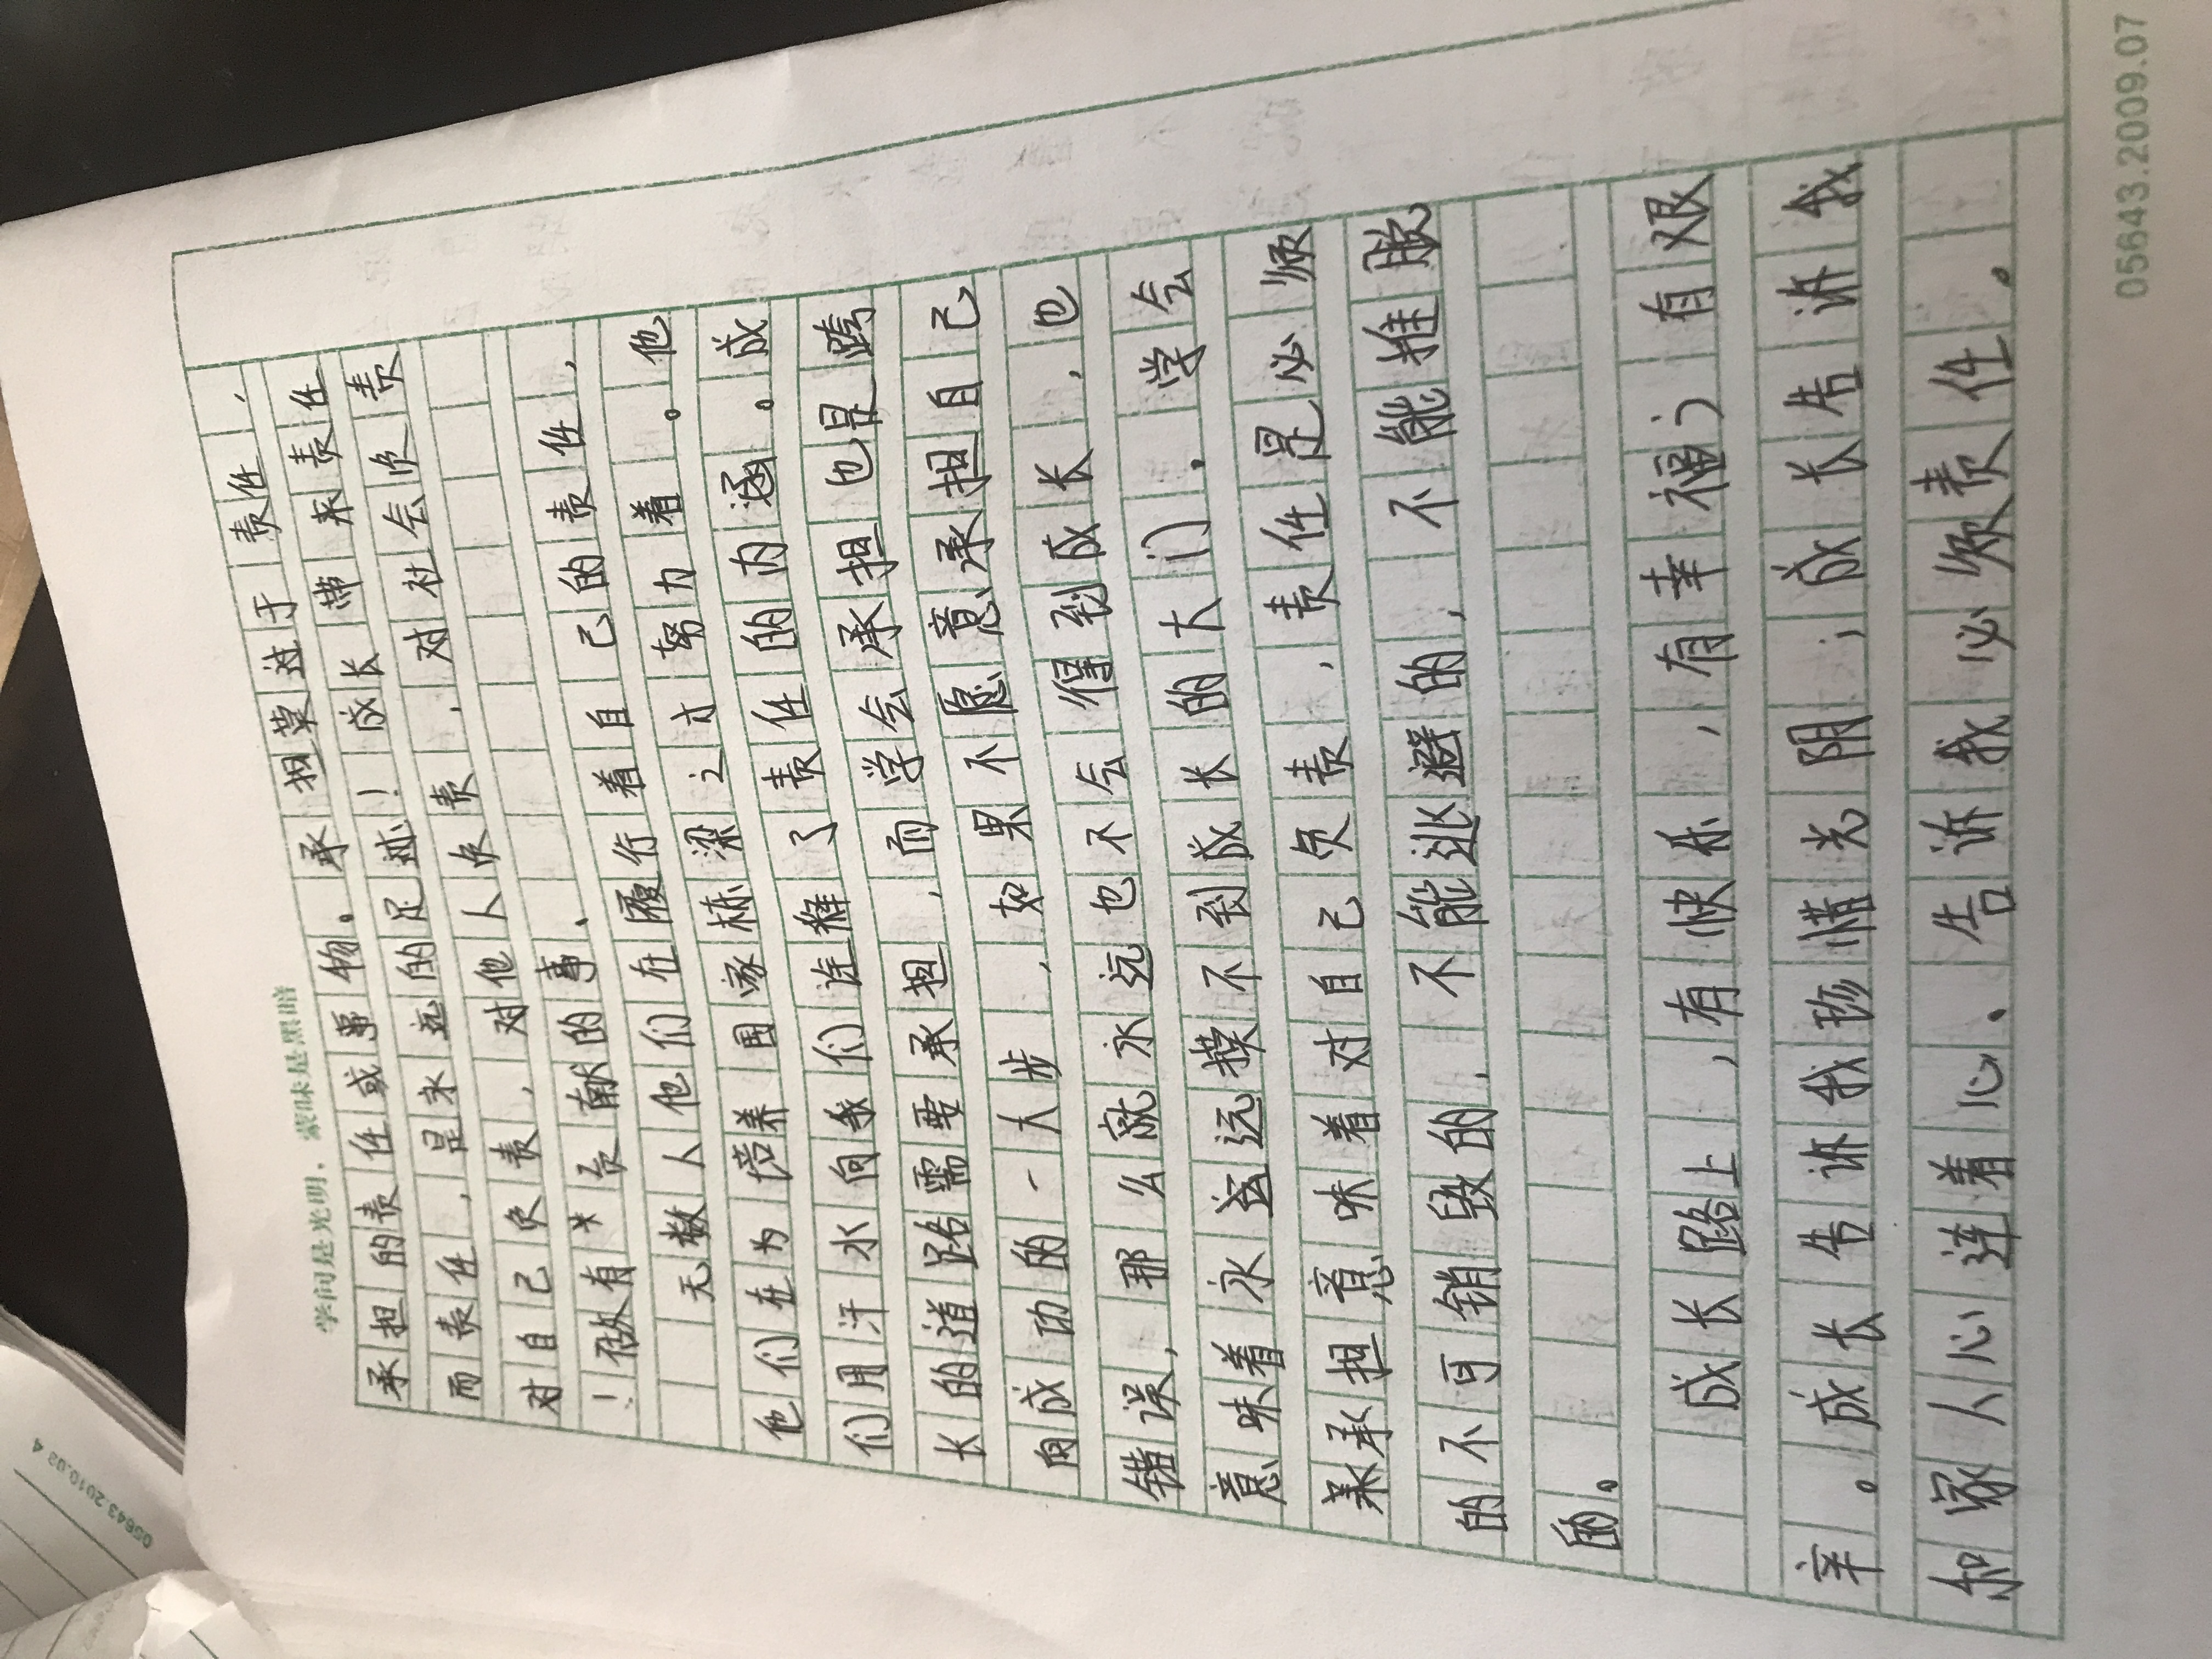 学问是光明，蒙昧是黑暗
承担的责任或事物。承担莫过于责任，
而责任，是永远的足迹！成长带来责任
对自己负责，对他人负责，对社会负责
！做有贡献的事、
无数人他们在履行着自己的责任，
他们在为培养国家栋梁之才努力着。他
们用汗水向我们诠释了责任的内涵。成
长的道路需要承担，而学会承担也是跨
向成功的一大步，如果不愿意承担自己
错误，那么就永远也不会得到成长，也
意味着永远摸不到成长的大门．学会
承担意味着对自己负责，责任是必须
的不可销毁的，不能逃避的，不能推脱
的。
成长路上，有快乐，有幸福，有艰
辛。成长告诉我珍惜光阴；成长告诉我
和家人心连着心、告诉我必须责任。
05643.2009.07
05643.2010.02 4